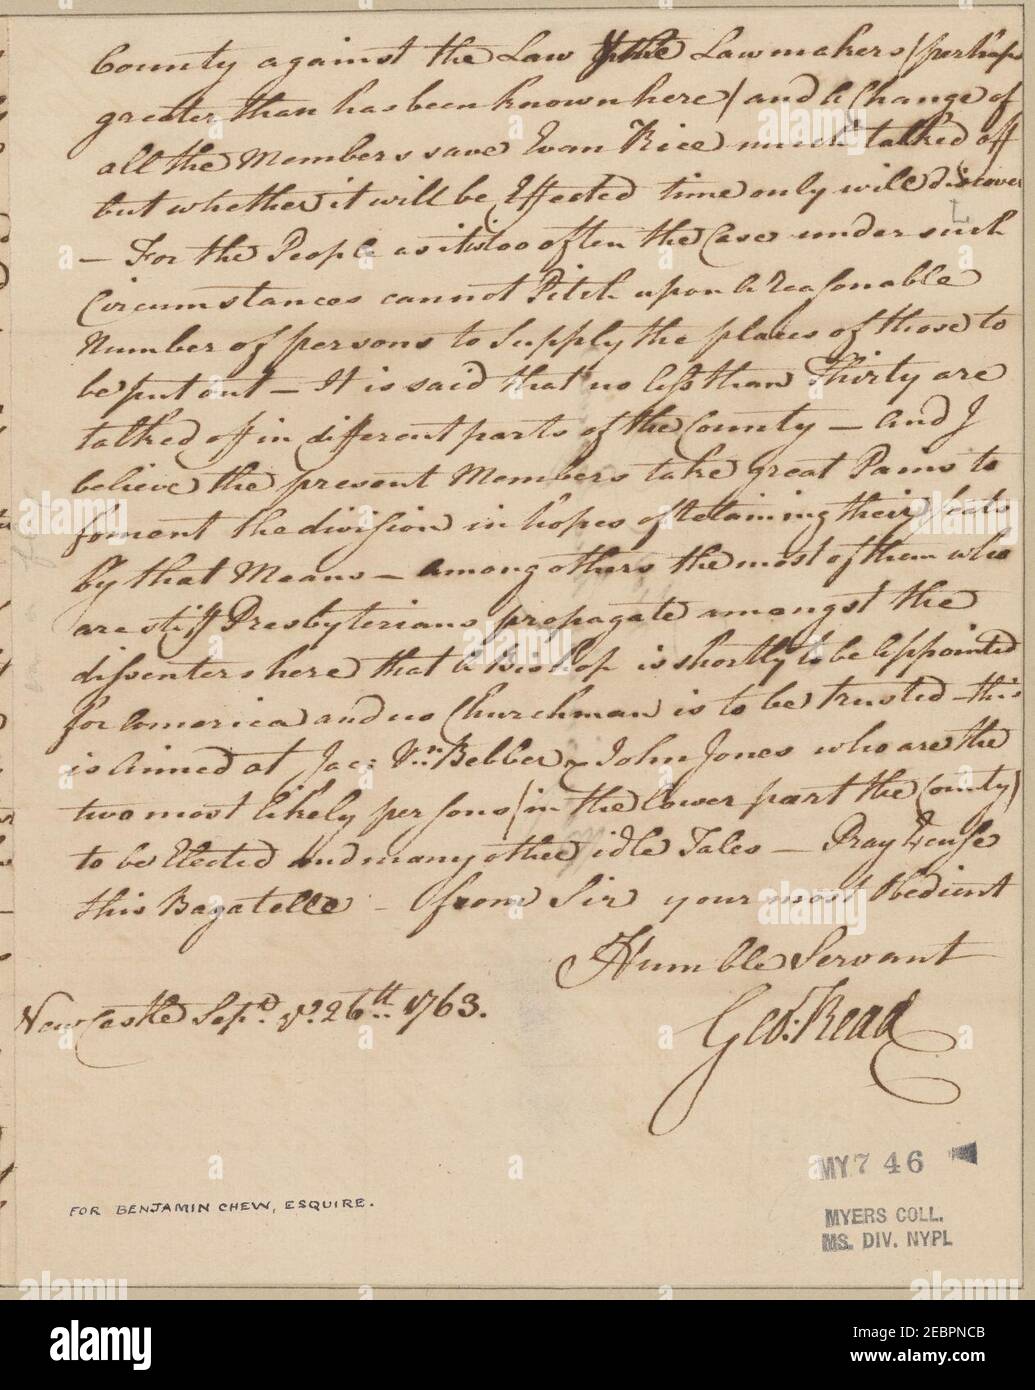 County against the Law & the Lawmakers (perhaps
greater than has been known here) and a Change of
all the Members save Evan Rice much talked off
but whether it will be Effected time only will discover
— For the People as it is too often the Case under such
Circumstances cannot Pitch upon a Reasonable
Number of persons to Supply the places of those to
be put out — It is said that no less than Thirty are
talked off in different parts of the County — and I
believe the present Members take great Pains to
foment the division in hopes of Retaining their seats
by that Means — amongothers the most of them who
are stiff Presbyterians propagate amongst the
dissenters here that a Bishop is shortly to be Appointed
for America and no Churchman is to be trusted — this
is Aimed at Jac: Vn Bebber & John Jones who are the
two most likely persons (in the lower part the County)
to be Elected and many other idle Tales — Pray Excuse
this Bagatelle — from Sir your most Obedient
Humble Servant
Geo: Read
New Castle Sepr. ye. 26th. 1763.
FOR BENJAMIN CHEW, ESQUIRE.
MY 7 46
MYERS COLL.
MS. DIV. NYPL
alamy
Image ID: 2EBPNCB
www.alamy.com